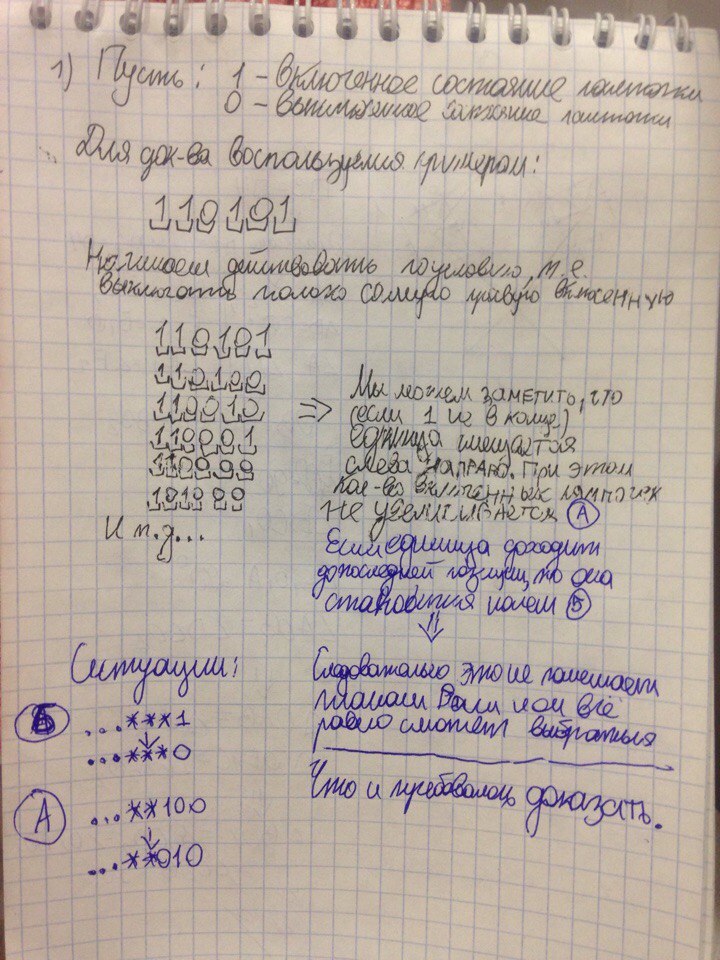 1) Пусть: 1 - включенное состояние лампочки
0 - выключенное состояние лампочки
Для док-ва воспользуемся примером:
110101
Начинаем действовать по условию, т.е.
выключать только самую правую включенную
110101
110100
110010
110001
110000
101000
И т.д...
=> Мы можем заметить, что
(если 1 не в конце)
единица смещается
слева направо. При этом
кол-во включенных лампочек
не увеличивается (А)
Если единица доходит
до последней позиции, то она
становится нолем (Б)
⇓
Следовательно это не помешает
планам Вали и он всё
равно сможет выбраться
Что и требовалось доказать.
Ситуации:
(Б) ...***1
↓
...***0
(А) ...**100
↓
...**010